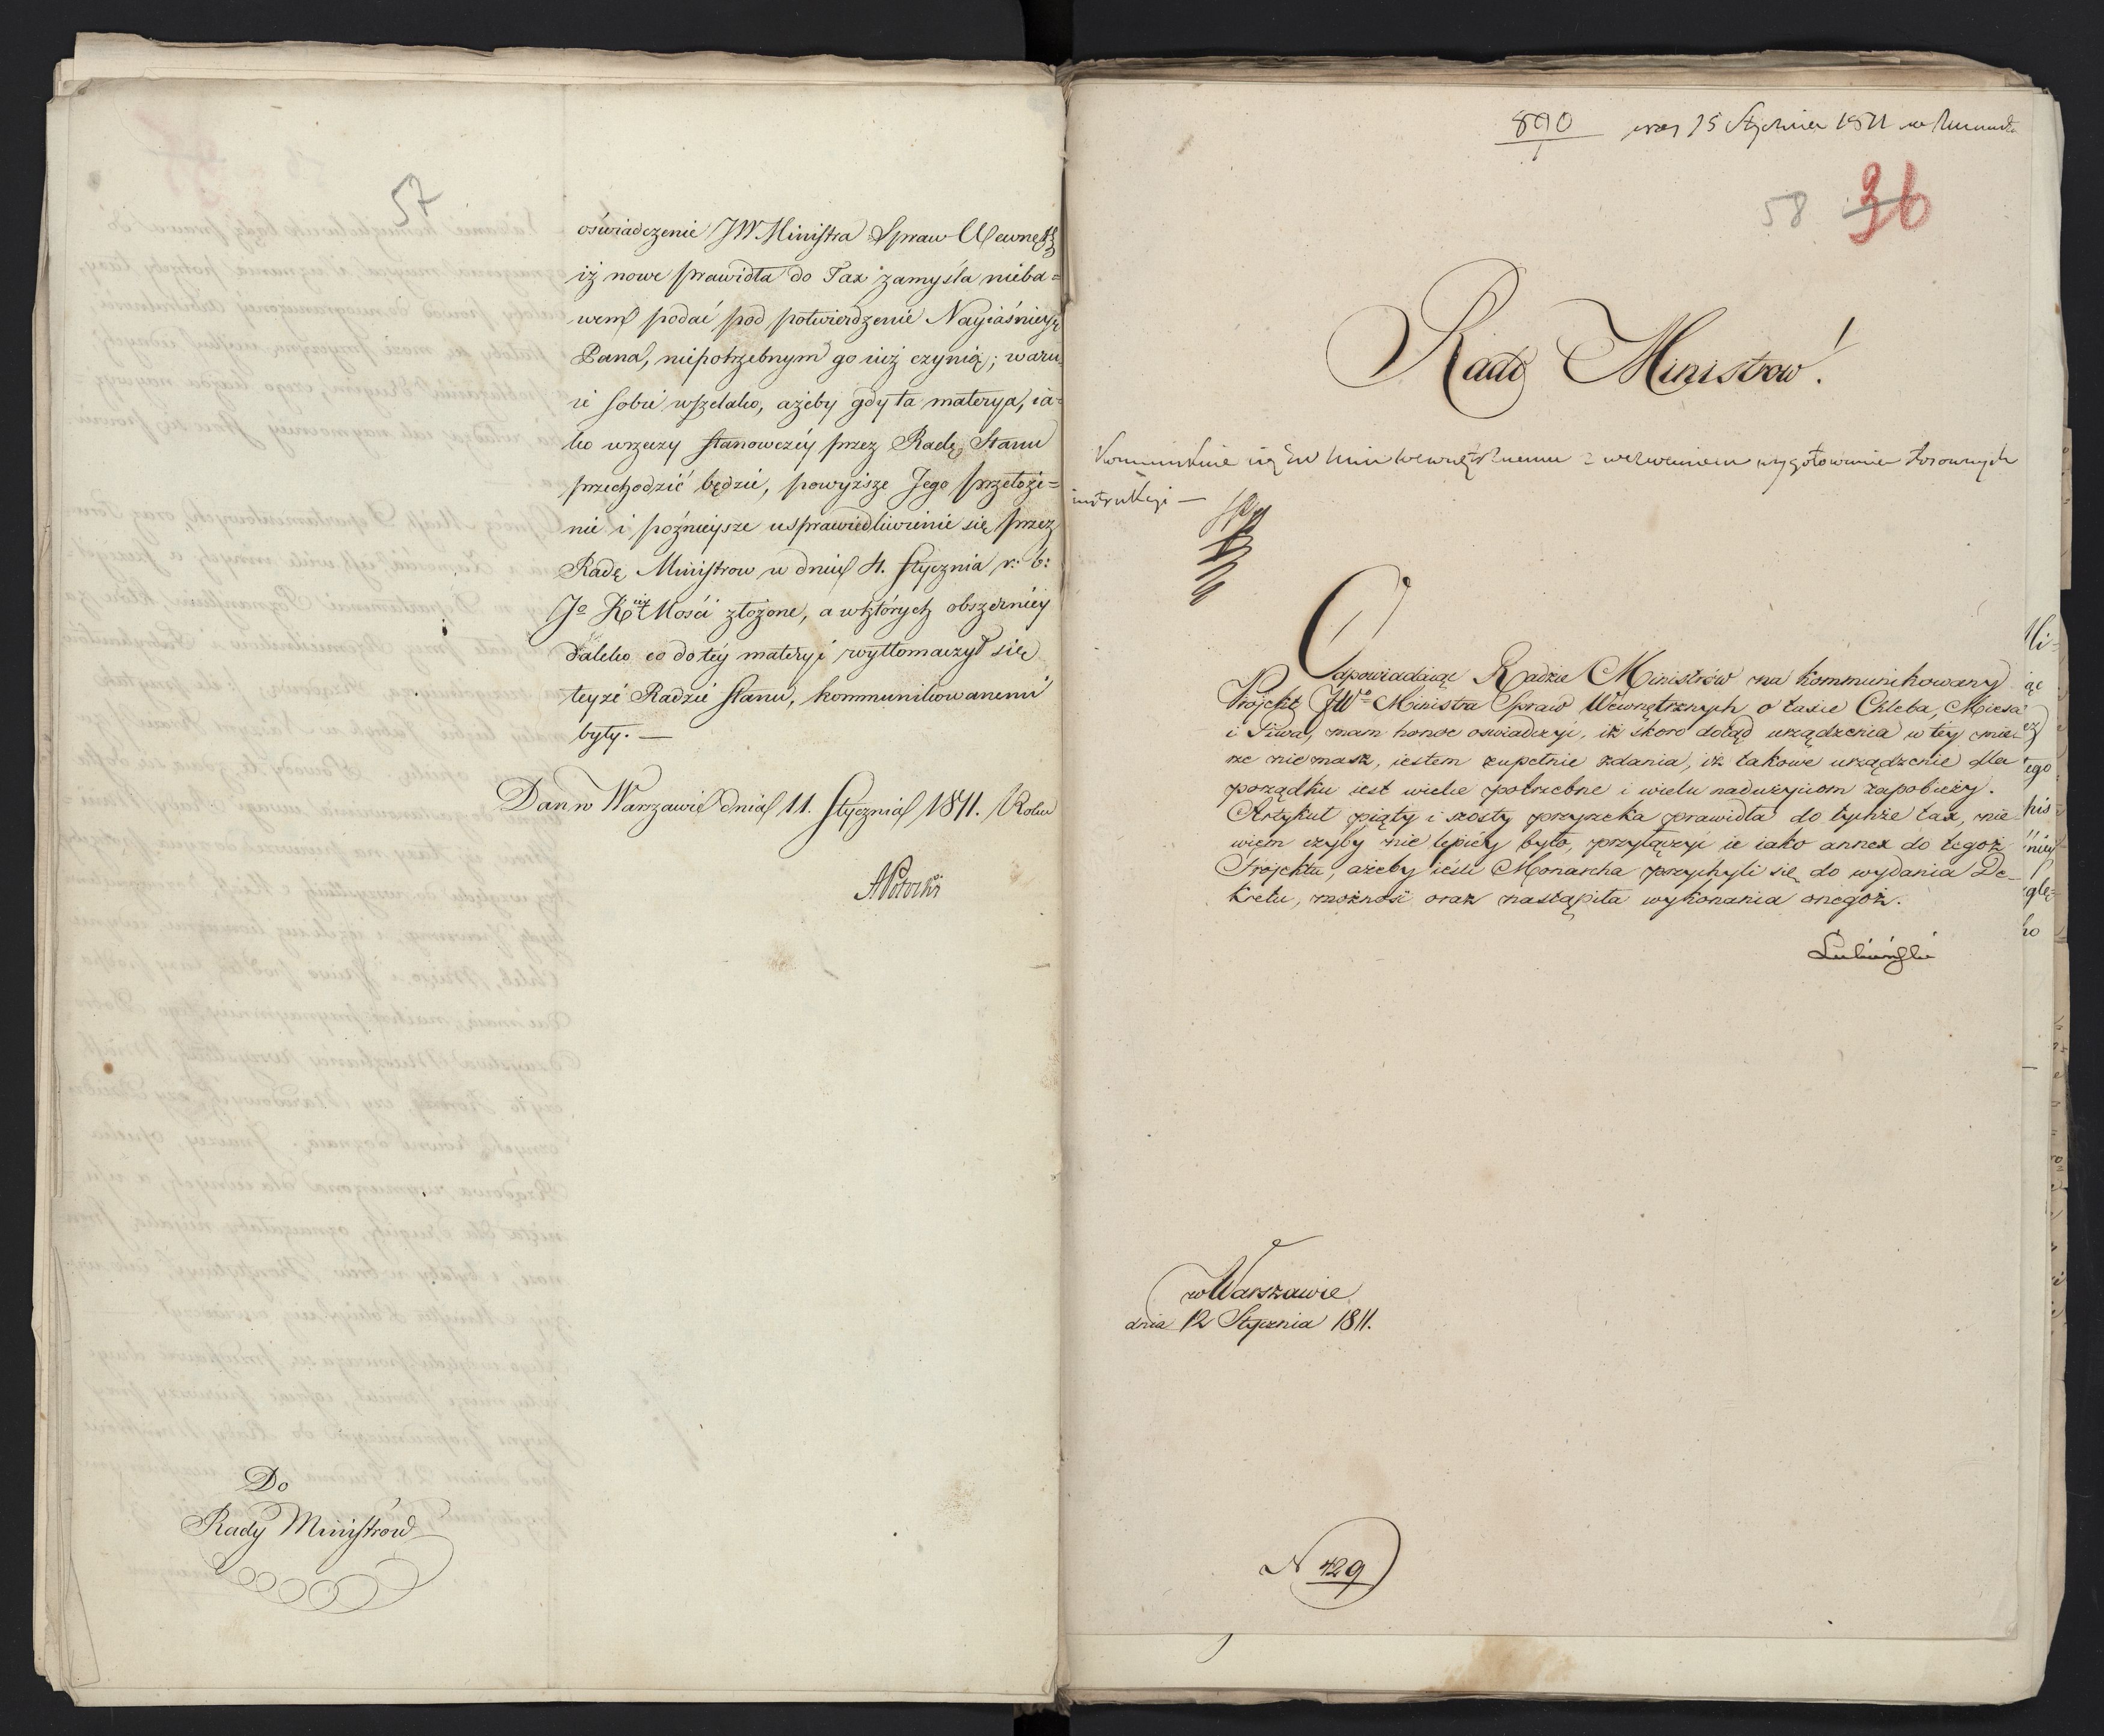 57
oświadczenie JW Ministra Spraw Wewnętrz
iż nowe prawidła do Tax zamyśla nieba=
wem podać pod potwierdzenie Nayiaśnieysz
Pana, niepotrzebnym go iuż czynią; waru
ie sobie wszelako, ażeby gdy ta materya, ia=
ko w rzeczy stanowczéy przez Radę Stanu
przechodzić będzie, powyższe Jego przełoże=
nie i późnieysze usprawiedliwienie się przez
Radę Ministrow w dniu 4. Stycznia r: b:
Jo Kcey Mości złożone, a w których obszerniéy
daleko co do téy materyi wytłomaczył się
teyże Radzie Stanu, kommunikowanemi
były. —
Dan w Warszawie dnia 11. Stycznia 1811. Roku
APotocki
Do
Rady Ministrow
890 15 Stycznia 1811
58 36
Rado Ministrow!
Wewnętrznemu z wezwaniem wygotowania stosownych
instrukcyi —
Odpowiadaiąc Radzie Ministrów na kommunikowany
Projekt JWo Ministra Spraw Wewnętrznych o taxie Chleba, Mięsa
i Piwa, mam honor oświadczyć, iż skoro dotąd urządzenia w téy mie-
rze nie masz, iestem zupełnie zdania, iż takowe urządzenie dla
porządku iest wielce potrzebne i wielu nadużyciom zapobieży.
Artykuł piąty i szósty przyrzeka prawidła do tychże tax, nie
wiem czyby nie lepiéy było, przyłączyć ie iako annex do tegoż
Projektu, ażeby ieśli Monarcha przychyli się do wydania De-
kretu, możność oraz nastąpiła wykonania onegoż.
Łubieński
w Warszawie
dnia 12 Stycznia 1811.
N 429